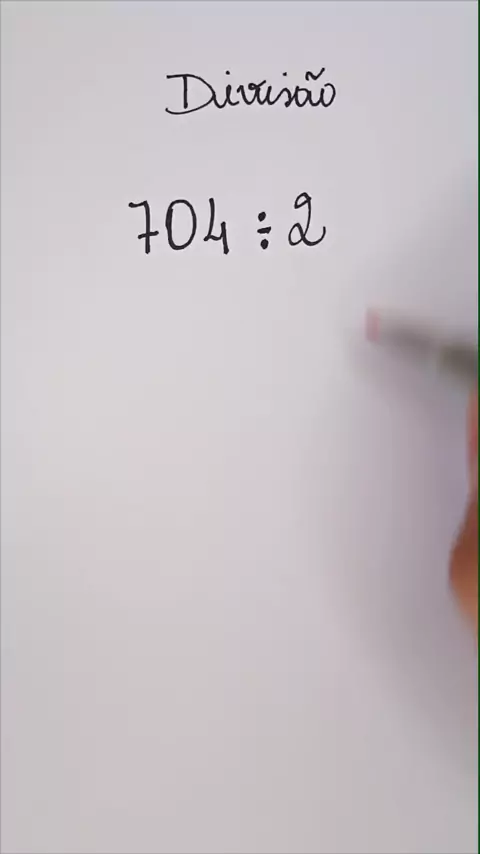 Divisão
704 ÷ 2